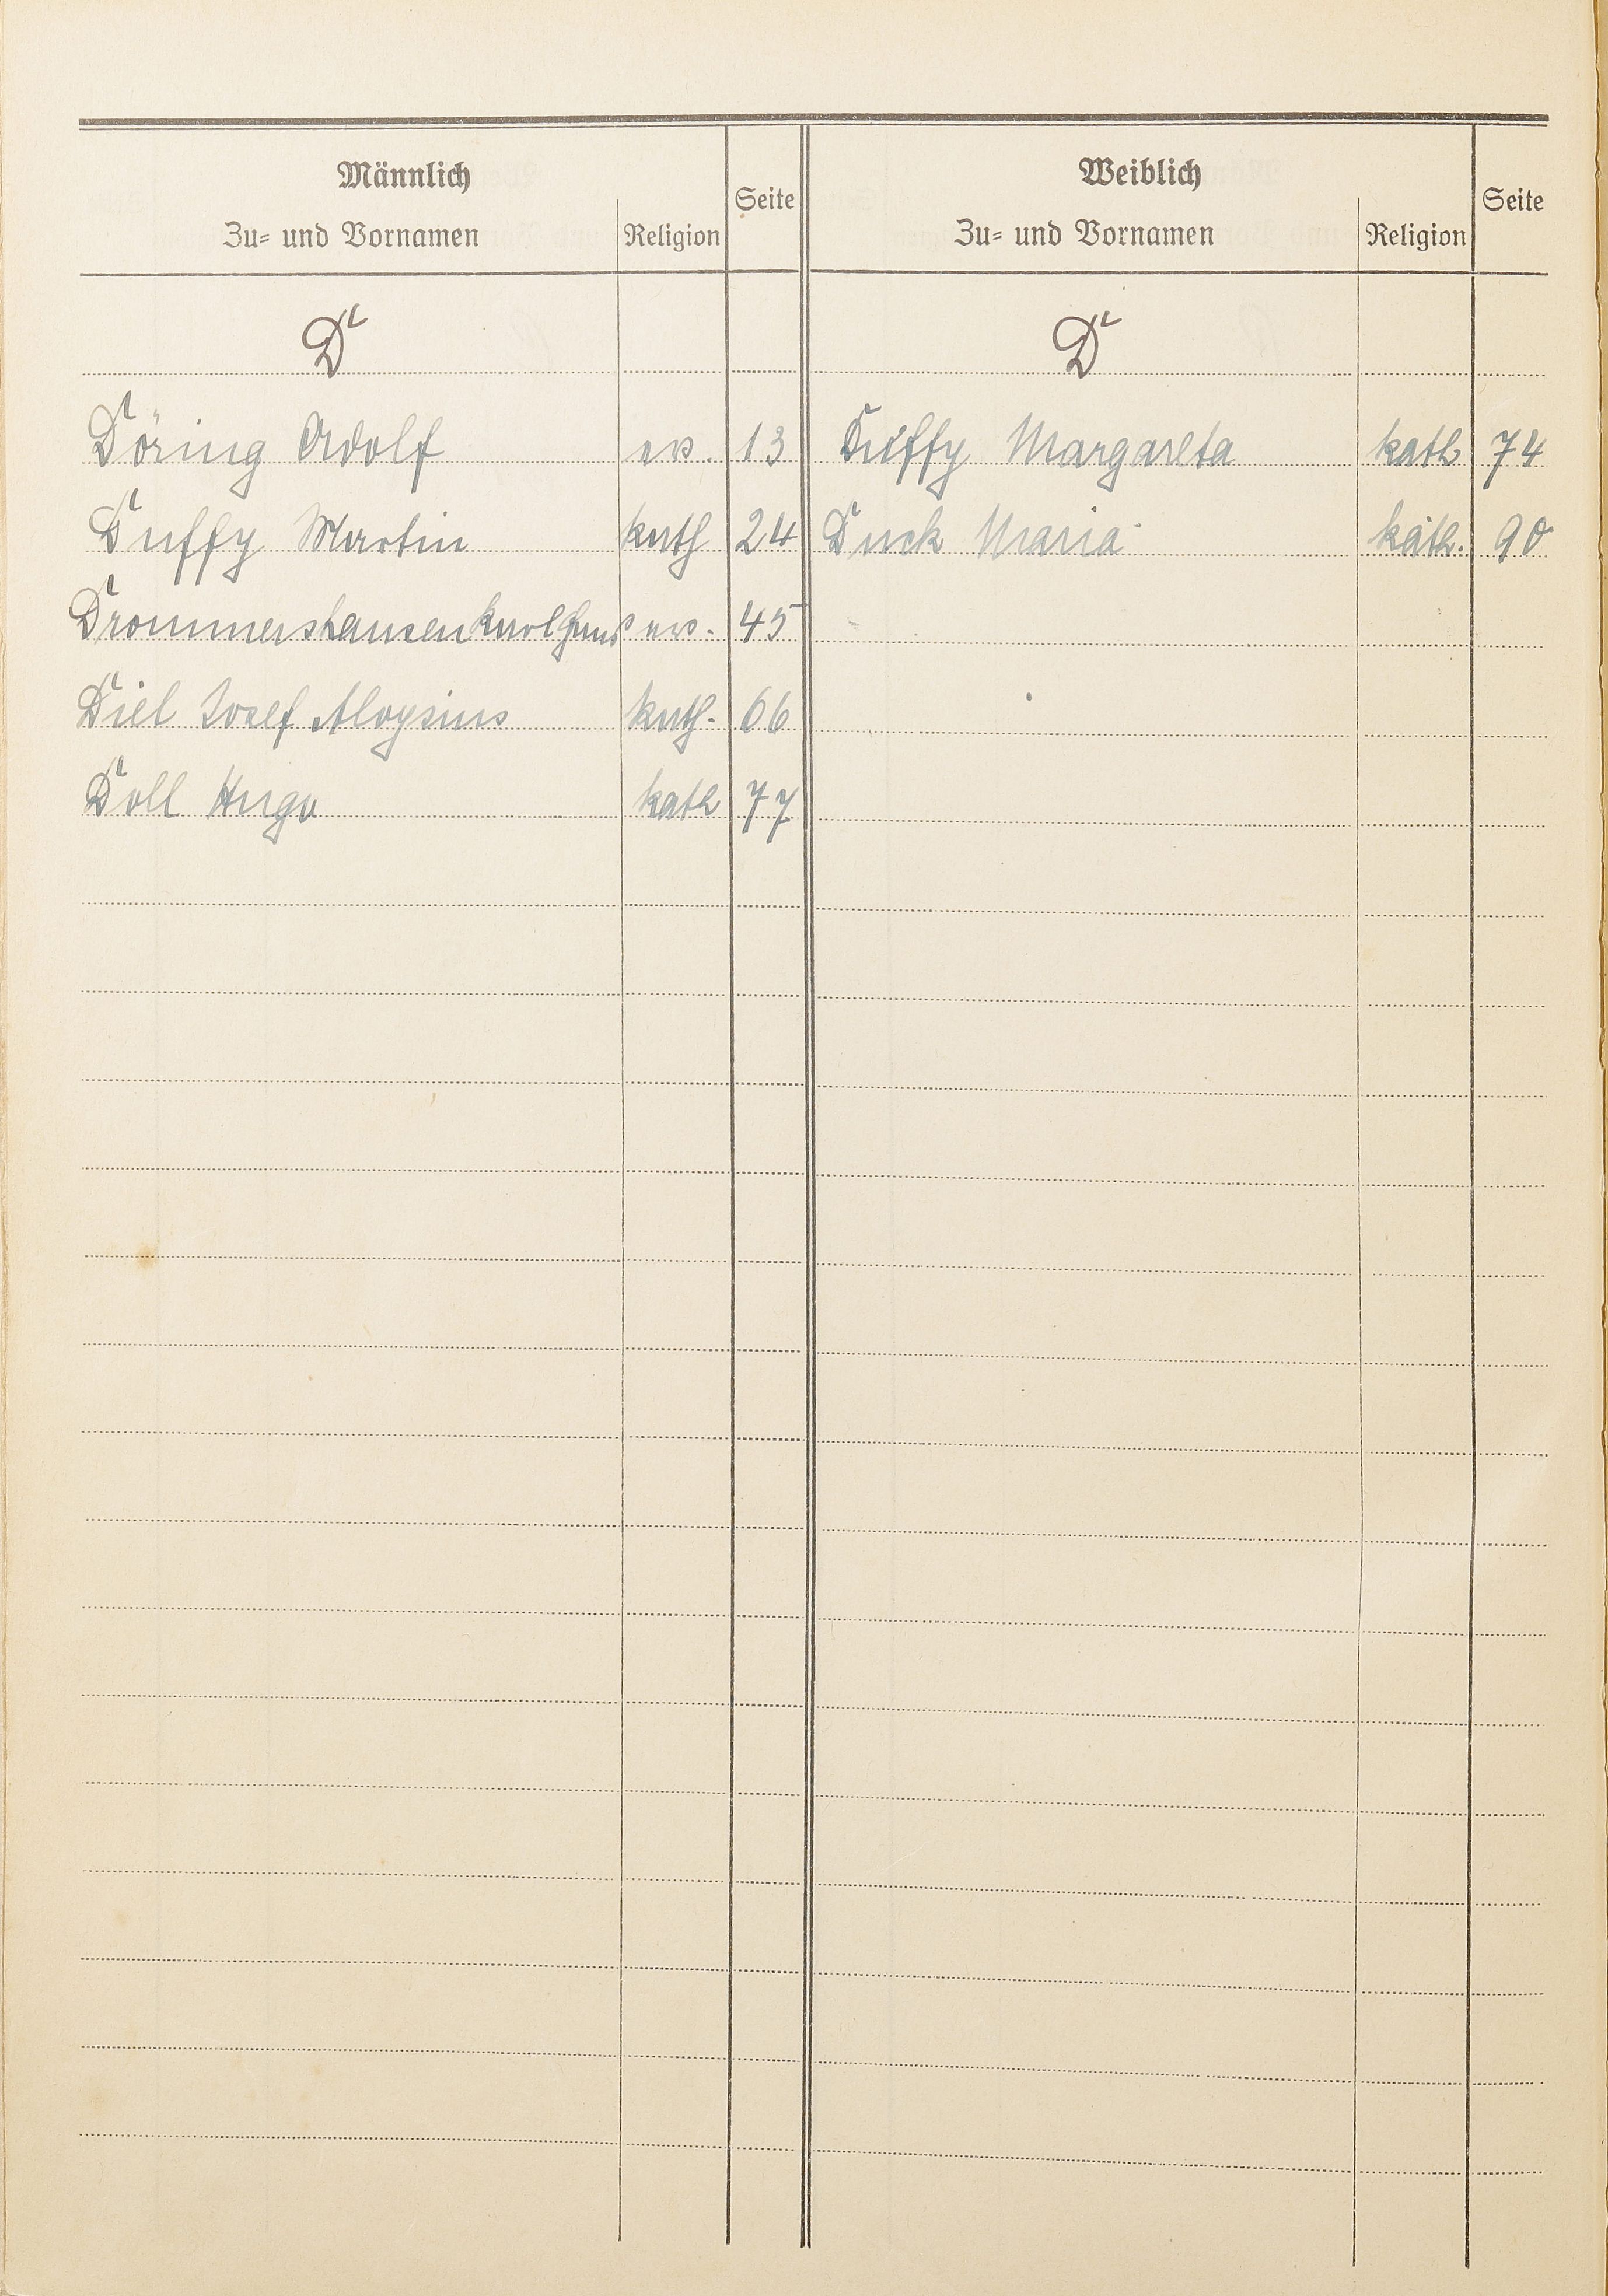 Männlich
Zu- und Vornamen Religion Seite
Weiblich
Zu- und Vornamen Religion Seite
D D
Döring Adolf ev. 13 Duffy Margareta kath 74
Duffy Martin kath 24 Duck Maria kath. 90
Drommershausen Karl Hans ev. 45
Diel Josef Aloysius kath. 66
Doll Hugo kath 77